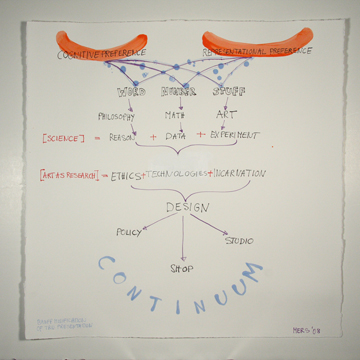 COGNITIVE PREFERENCE REPRESENTATIONAL PREFERENCE
WORD NUMBER STUFF
PHILOSOPHY MATH ART
[SCIENCE] = REASON + DATA + EXPERIMENT
[ART AS RESEARCH] = ETHICS + TECHNOLOGIES + INCARNATION
DESIGN
POLICY STUDIO
SHOP
CONTINUUM